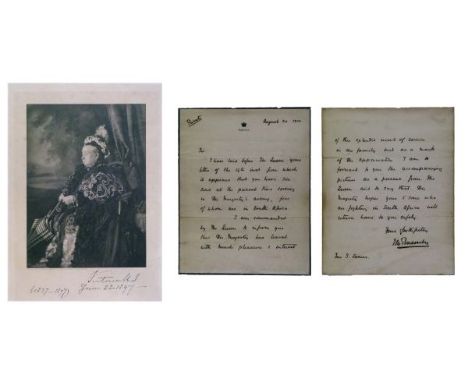 Victoria R I
1837-1897 June 22. 1897
Private
August 20 1900
Sir
I have laid before The Queen your
letter of the 19th inst. from which
it appears that you have six
sons at the present time serving
in Her Majesty's Army, four
of whom are in South Africa.
I am commanded
by The Queen to inform you
that Her Majesty has learned
with much pleasure & interest
of this splendid record of service
in one family and as a mark
of Her appreciation I am to
forward to you the accompanying
picture as a present from The
Queen and to say that Her
Majesty hopes your 4 sons who
are fighting in South Africa will
return home to you safely.
Yours faithfully